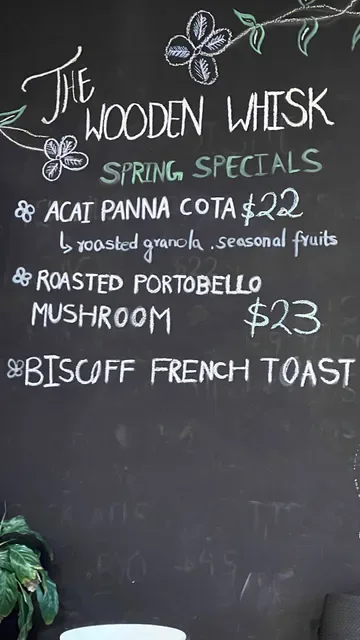 THE
WOODEN WHISK
SPRING SPECIALS
ACAI PANNA COTA $22
↳ roasted granola . seasonal fruits
ROASTED PORTOBELLO
MUSHROOM $23
BISCOFF FRENCH TOAST